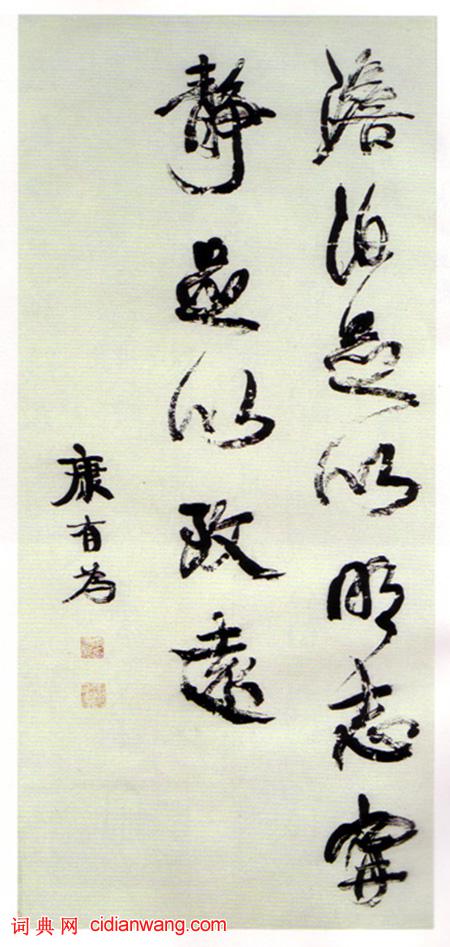 澹泊足以明志寧
靜足以致遠
康有為
词典网 cidianwang.com